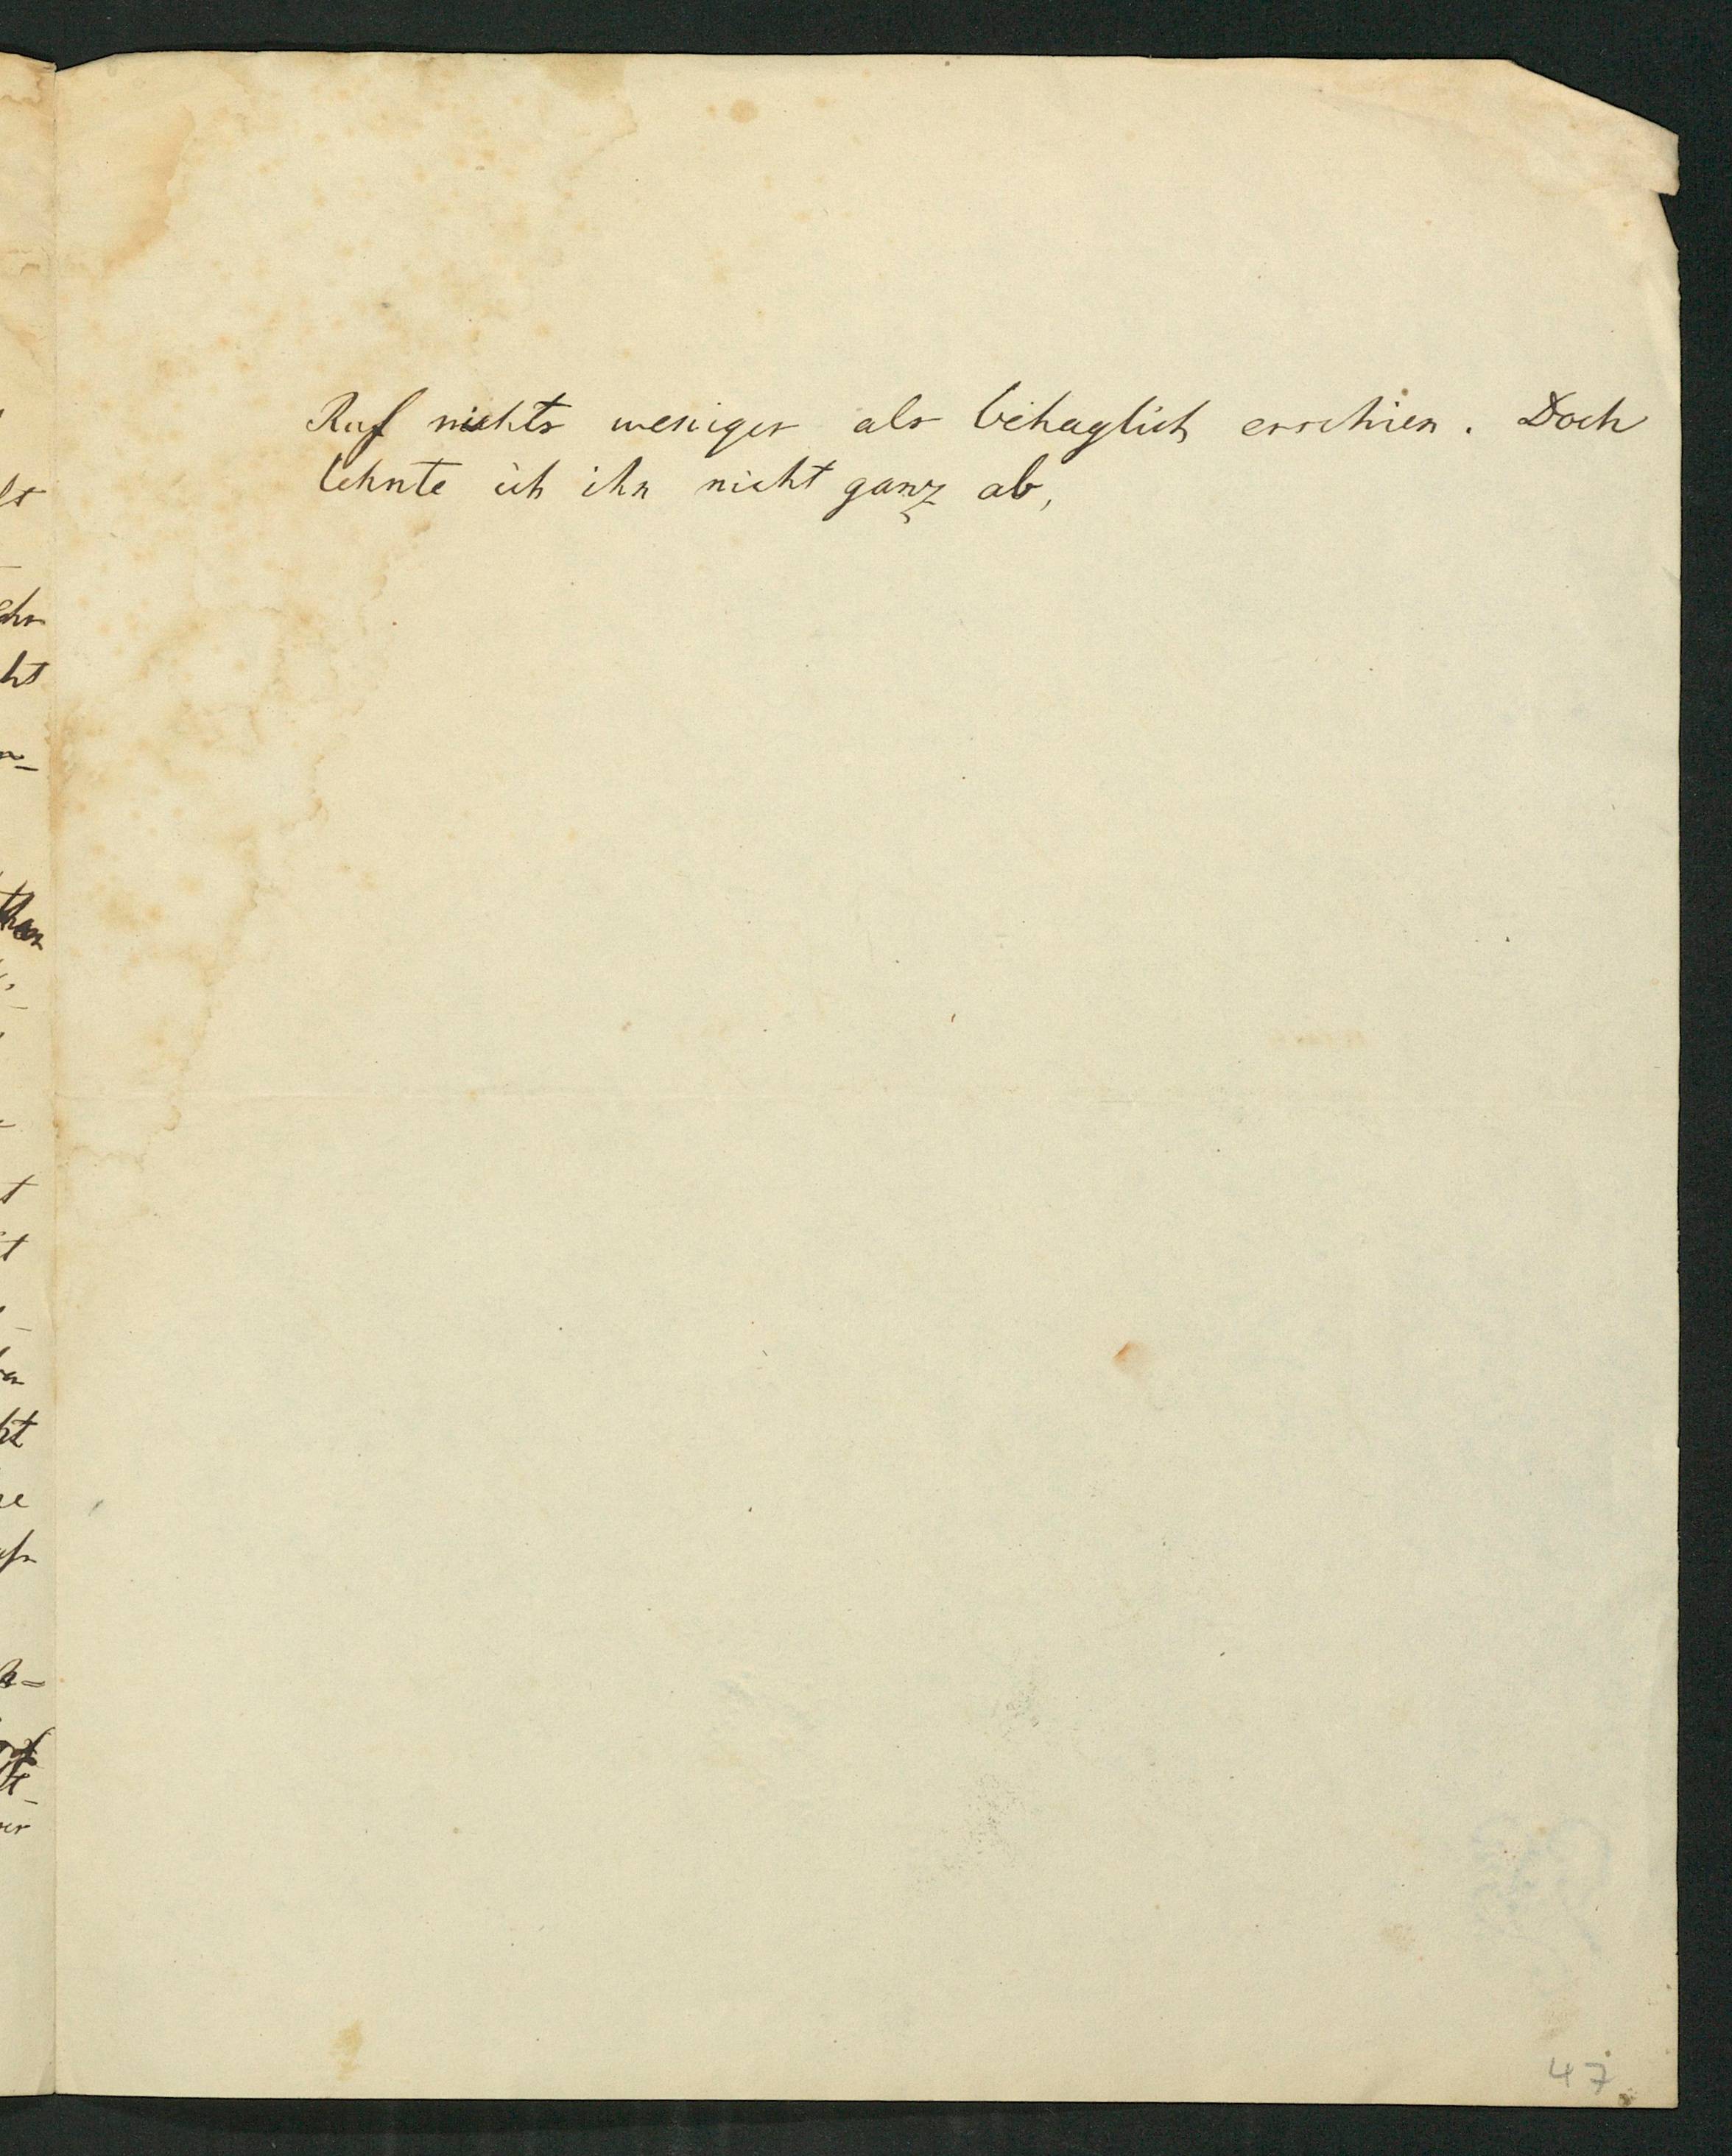 Ruf nichts weniger als behaglich erschien. Doch
lehnte ich ihn nicht ganz ab,
47.